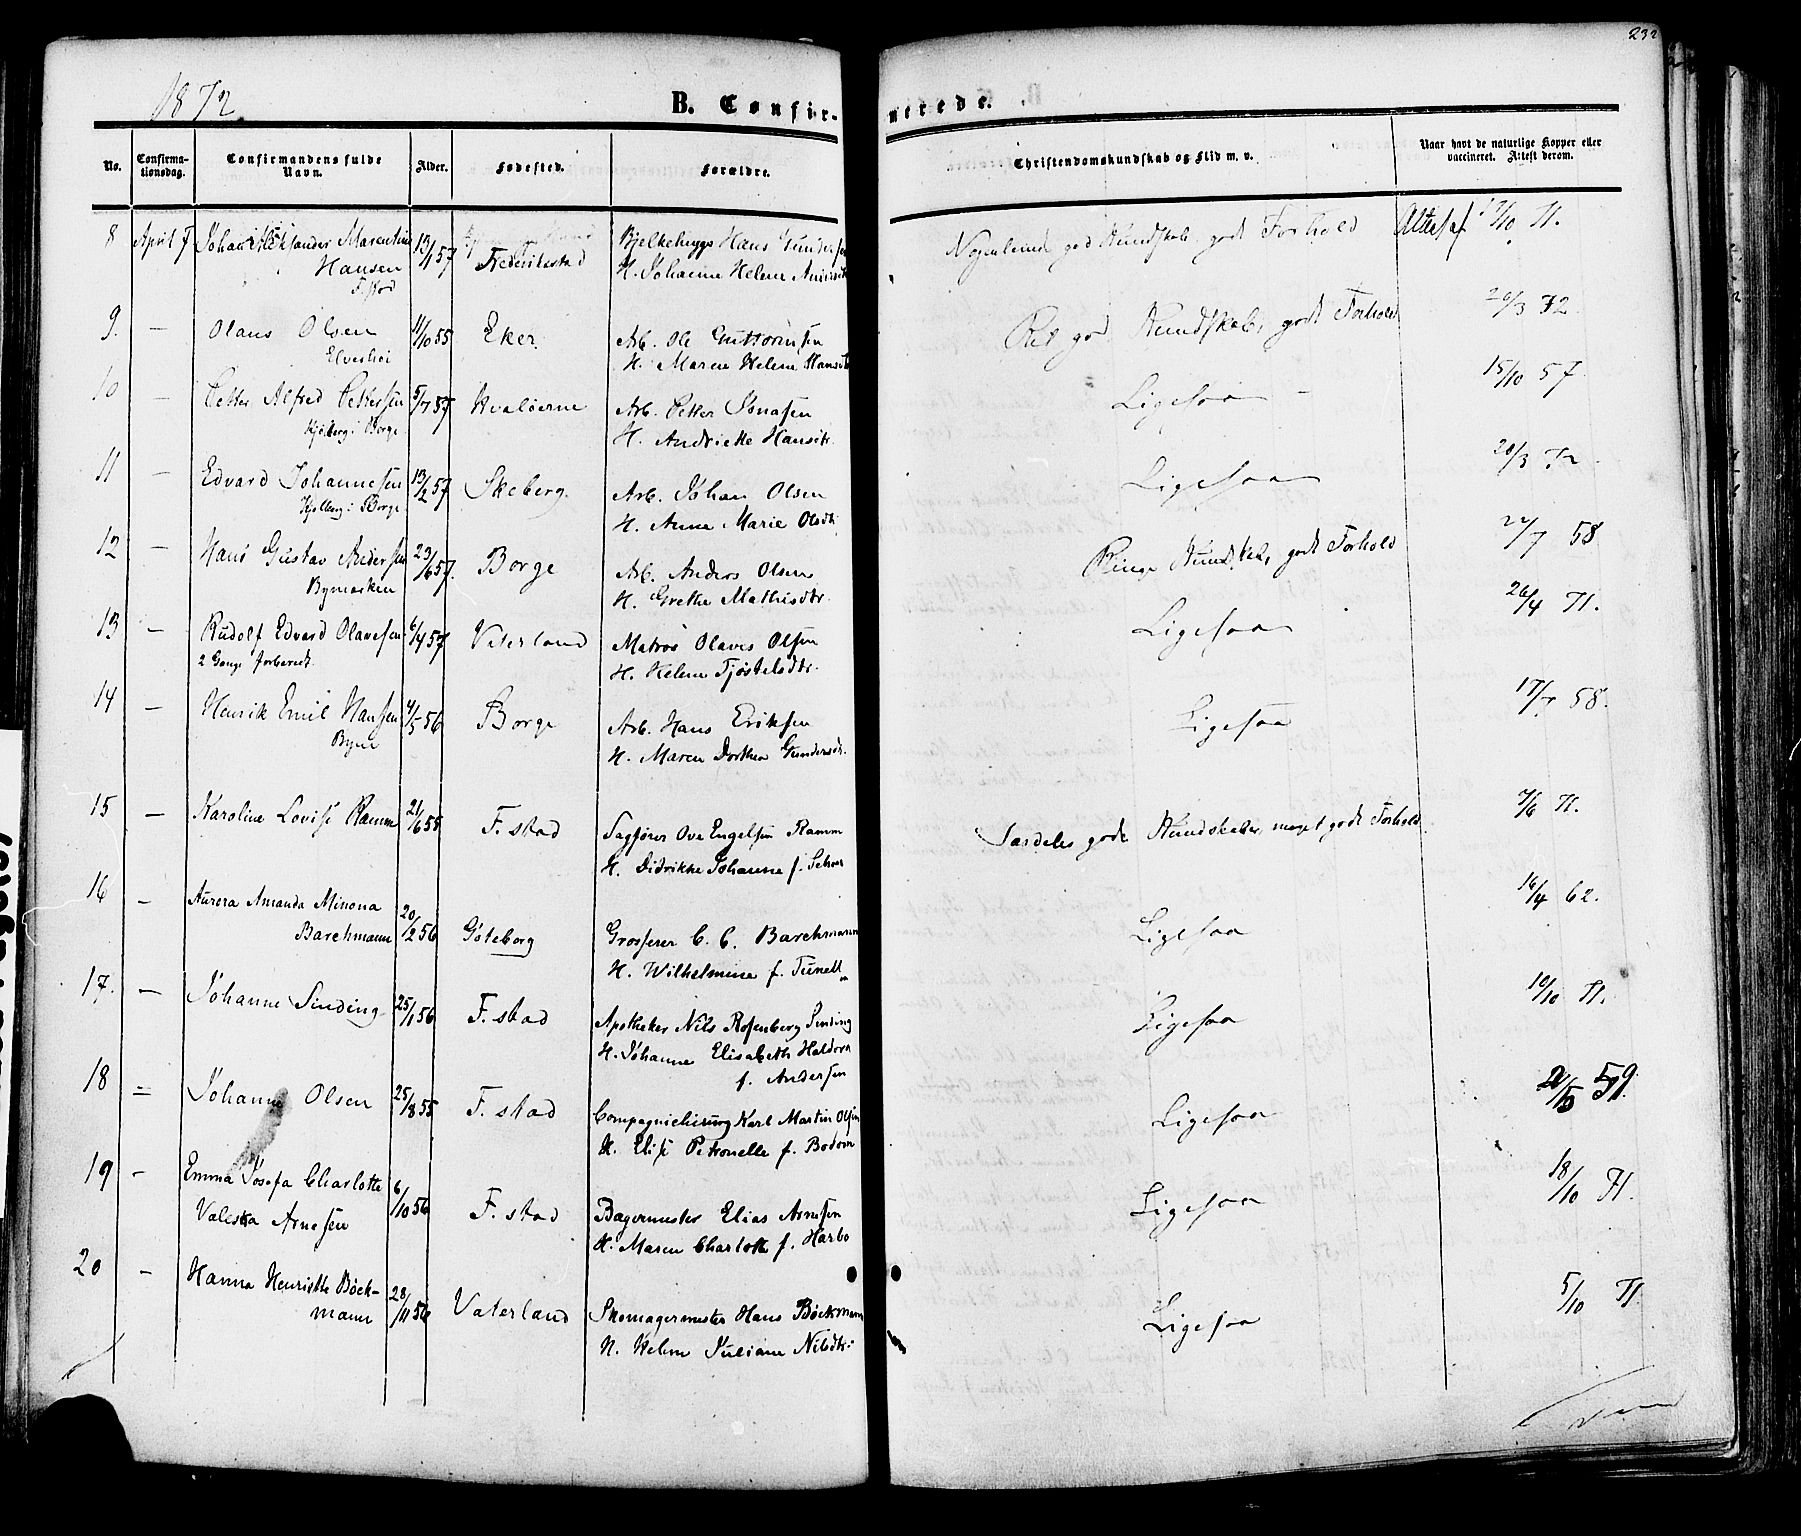 232
1872.
B. Confirmerede.
No. Confirmationsdag. Confirmandens fulde Navn. Alder. Fødested. Forældre. Christendomskundskab og Flid m. v. Naar havt de naturlige Kopper eller vaccineret. Attest derom.
8 April 7 Johan Aleksander Marentius 13/1 57 Bjelkehugg Hans Gundersen Nogenlunde god Kundskab, godt Forhold Attest af 17/10 71.
Hansen Frederiksstad H. Johanne Helene
F.stad
9. — Olaus Olsen 11/10 55 Eker. Arb. Ole Guttormsen Ret god Kundskab, godt Forhold 20/3 72.
H. Maren Helene Hansdtr
10 — Petter Alfred Pettersen 5/7 57 Hvaløerne Arb. Petter Jonasen Ligesaa — 15/10 57
Kjølberg i Borge H. Andriette Hansdtr.
11 — Edvard Johannesen 13/2 57 Skeberg. Arb. Johan Olsen Ligesaa 20/3 72
Kjølberg i Borge H. Anne Marie Olsdtr
12 — Hans Gustav Andersen 23/6 57. Borge Arb. Anders Olsen Ringe Kundskab, godt Forhold 22/7 58
Bymarken H. Grethe Mathisdtr.
13 — Rudolf Edvard Olavesen 6/4 57 Vaterland Matros Olaves Olsen Ligesaa 26/4 71.
2 Gange forberedt. H. Helene Tjøstelsdtr.
14 — Henrik Emil Hanssen 4/5 56 Borge Arb. Hans Eriksen Ligesaa 17/7 58.
Byen H. Maren Dorthea Gundersdtr.
15 — Karoline Lovise Ramm 21/6 55 F.stad Sagfører Ove Engelsen Ramm Særdeles gode Kundskaber, meget godt Forhold. 7/6 71.
H. Didrikke Johanne f.
16 — Aurora Amanda Minona Barchmann 20/2 56 Göteborg Grosserer C. C. Barchmann Ligesaa 16/4 62.
H. Wilhelmine f. Tunell
17. — Johanne Sinding 25/1 56 F. stad Apotheker Nils Rosenberg Sinding Ligesaa 10/10 71.
H. Johanne Elisabeth Haldora
f. Andersen
18 = Johanne Olsen 25/8 55 F. stad Compagnichirurg Karl Martin Olsen Ligesaa 59.
H. Elise Petronelle f. Bodom
19 - Emma Josefa Charlotte 6/10 56 F. stad Bagermester Elias Arnesen Ligesaa 18/10 71.
Valeska Arnesen H. Maren Charlotte f. Harbo
20 — Hanna Henriette Böck- 28/11 56 Vaterland Skomagermester Hans Böckmann Ligesaa 5/10 71.
mann H. Helene Juliane Nilsdtr.